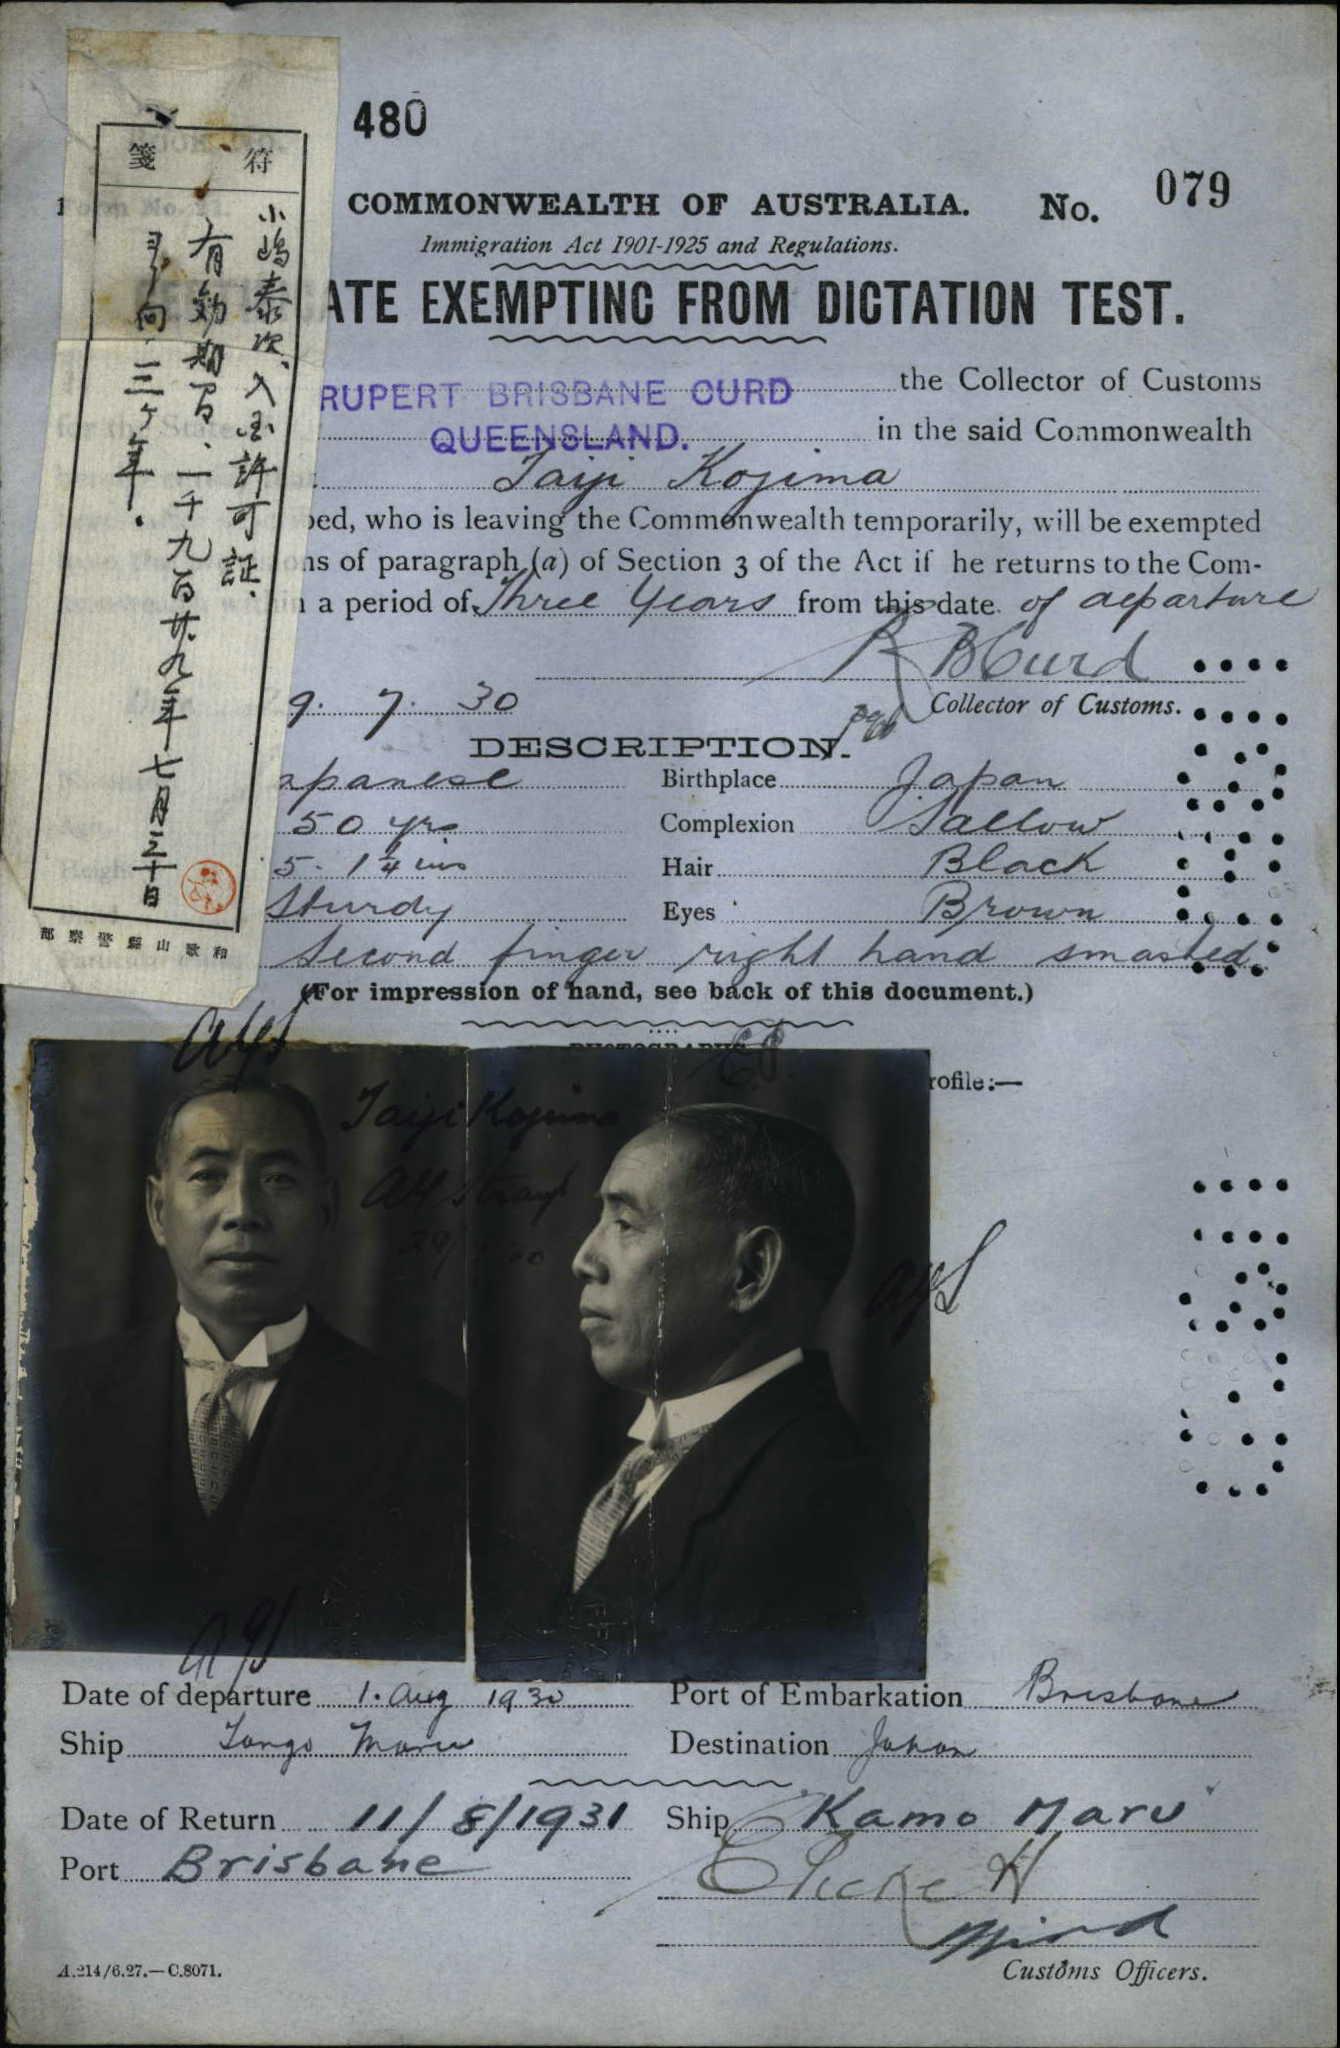 480
COMMONWEALTH OF AUSTRALIA. No. 079
Immigration Act 1901-1925 and Regulations.
ATE EXEMPTING FROM DICTATION TEST.
RUPERT BRISBANE CURD the Collector of Customs
for the State QUEENSLAND. in the said Commonwealth
Taiji Kojima
bed, who is leaving the Commonwealth temporarily, will be exempted
ns of paragraph (a) of Section 3 of the Act if he returns to the Com-
a period of Three Years from this date of departure
R B Curd
9. 7. 30 Collector of Customs.
DESCRIPTION.
apanese Birthplace Japan
50 yrs Complexion Sallow
5. 1 1/4 ins Hair Black
Sturdy Eyes Brown
Second finger right hand smashed
(For impression of hand, see back of this document.)
PHOTOGRAPHS
rofile:—
符箋
小嶋泰次、入国許可証.
有効期限、一千九百廿九年七月三十日
ヨリ向三ヶ年.
和歌山縣警察部
Taiji Kojima
Date of departure 1. Aug 1930 Port of Embarkation Brisbane
Ship Tango Maru Destination Japan
Date of Return 11/8/1931 Ship "Kamo Maru"
Port Brisbane
Customs Officers.
A.214/6.27.—C.8071.